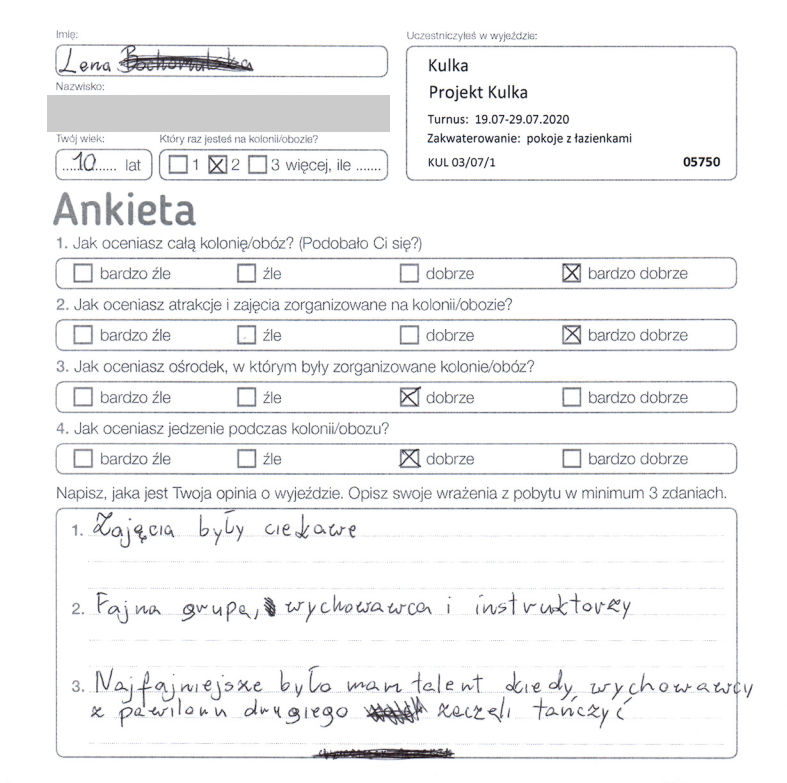 Imię:
Lena
Nazwisko:
Twój wiek:
10 lat
Który raz jesteś na kolonii/obozie?
1 2 3 więcej, ile .......
Uczestniczyłeś w wyjeździe:
Kulka
Projekt Kulka
Turnus: 19.07-29.07.2020
Zakwaterowanie: pokoje z łazienkami
KUL 03/07/1 05750
Ankieta
1. Jak oceniasz całą kolonię/obóz? (Podobało Ci się?)
bardzo źle źle dobrze bardzo dobrze
2. Jak oceniasz atrakcje i zajęcia zorganizowane na kolonii/obozie?
bardzo źle źle dobrze bardzo dobrze
3. Jak oceniasz ośrodek, w którym były zorganizowane kolonie/obóz?
bardzo źle źle dobrze bardzo dobrze
4. Jak oceniasz jedzenie podczas kolonii/obozu?
bardzo źle źle dobrze bardzo dobrze
Napisz, jaka jest Twoja opinia o wyjeździe. Opisz swoje wrażenia z pobytu w minimum 3 zdaniach.
1. Zajęcia były ciekawe
2. Fajna grupa, wychowawca i instruktorzy
3. Najfajniejsze było mam talent kiedy wychowawcy
z pawilonu drugiego zaczeli tańczyć